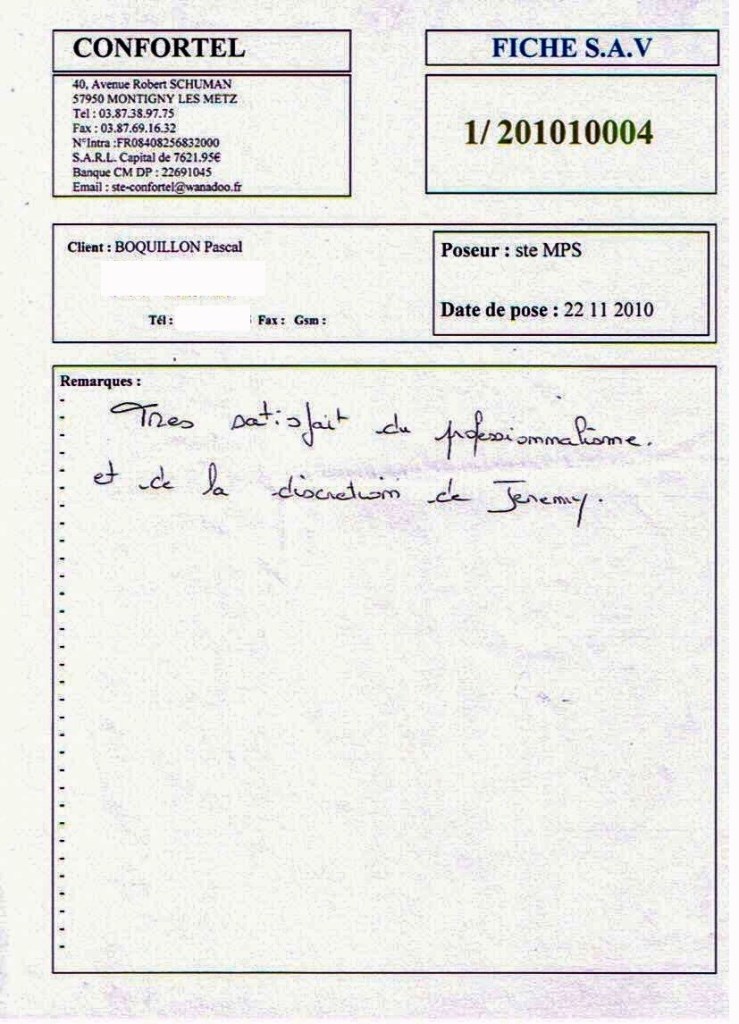 CONFORTEL
FICHE S.A.V
40, Avenue Robert SCHUMAN
57950 MONTIGNY LES METZ
Tel : 03.87.38.97.75
Fax : 03.87.69.16.32
N°Intra :FR08408256832000
S.A.R.L. Capital de 7621.95€
Banque CM DP : 22691045
Email : ste-confortel@wanadoo.fr
1/ 201010004
Client : BOQUILLON Pascal
Tél : Fax : Gsm :
Poseur : ste MPS
Date de pose : 22 11 2010
Remarques :
Tres satisfait du professionnalisme.
et de la discretion de Jeremy.